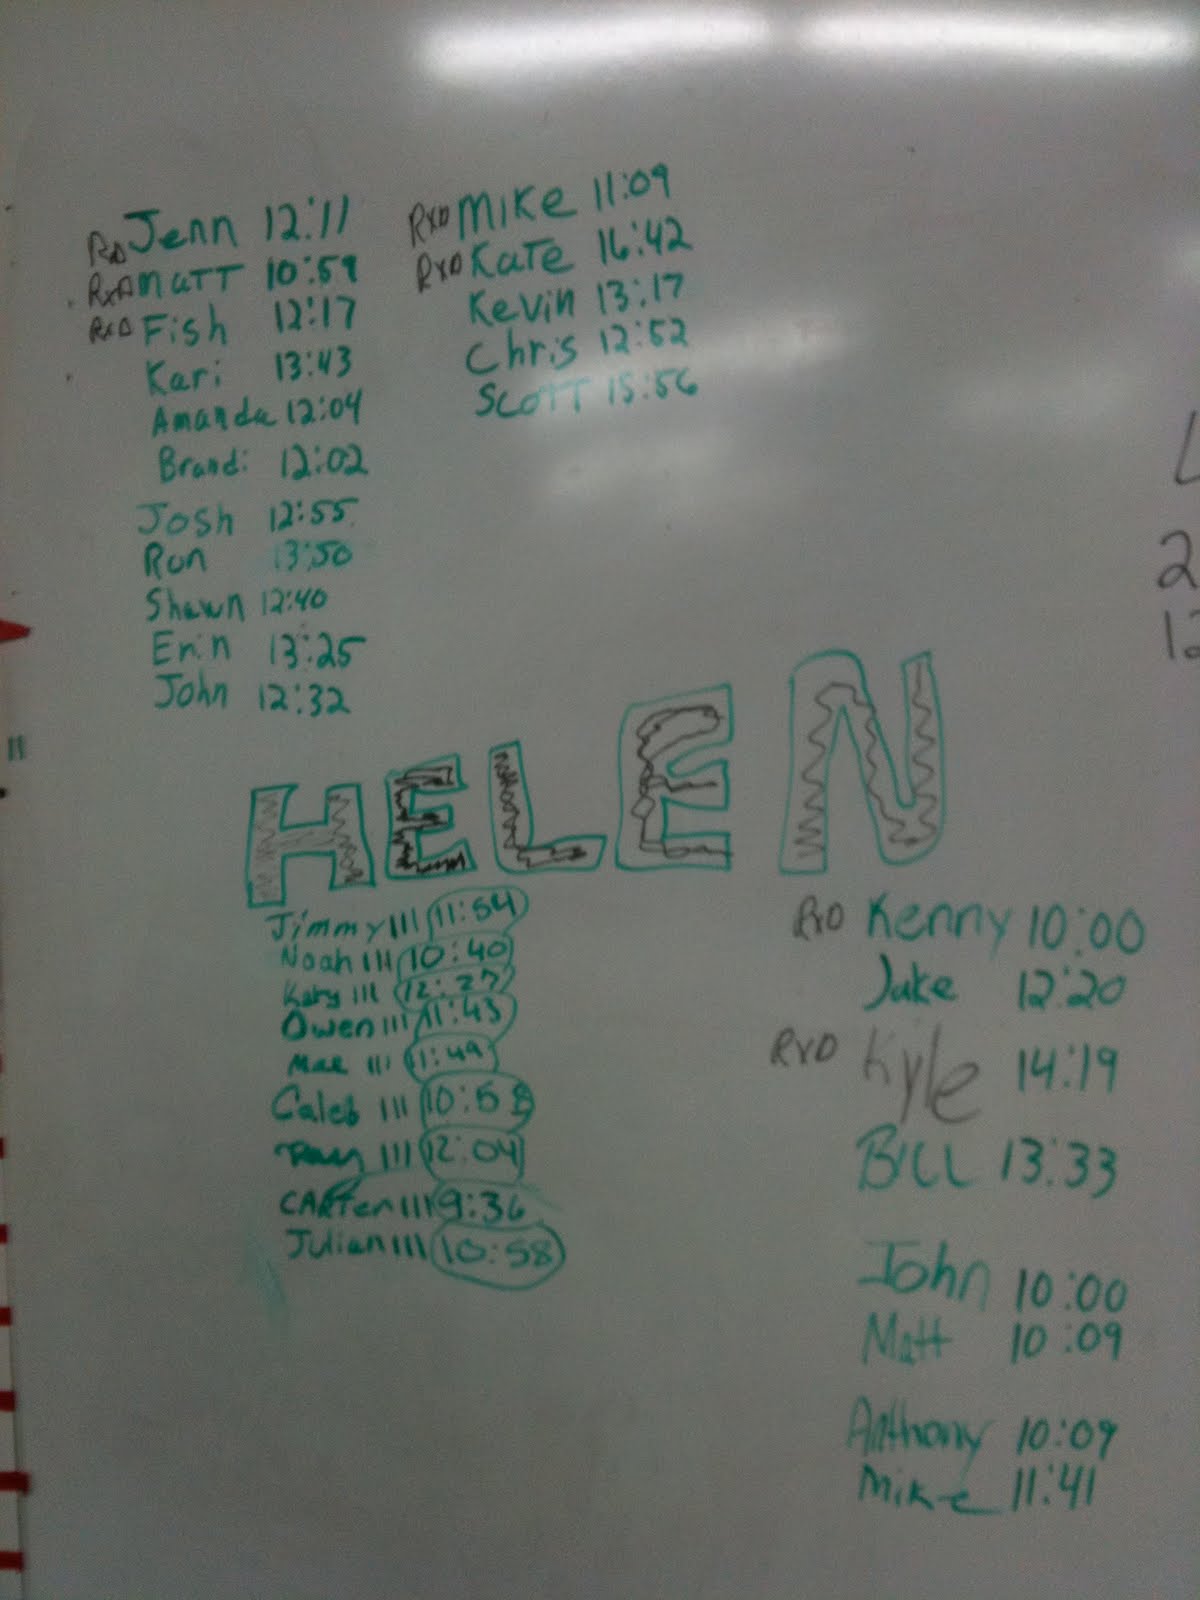 RxD Jenn 12:11
RxD Matt 10:59
RxD Fish 12:17
Kari 13:43
Amanda 12:04
Brandi 12:02
Josh 12:55
Ron 13:50
Shawn 12:40
Erin 13:25
John 12:32
RXD Mike 11:09
RXD Kate 16:42
Kevin 13:17
Chris 12:52
SCOTT 15:56
HELEN
Jimmy III 11:54
Noah III 10:40
Katy III 12:27
Owen III 11:43
Mae III 11:49
Caleb III 10:58
III 12:04
CARTer III 9:36
Julian III 10:58
RXD Kenny 10:00
Jake 12:20
RXD Kyle 14:19
BILL 13:33
John 10:00
Matt 10:09
Anthony 10:09
Mike 11:41